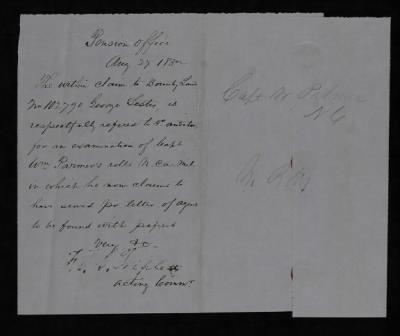 Pension Office
Aug 27 1852
The within claim to Bounty Land
No 102790 George Lester, is
respectfully refered to 3d auditor
for an examination of Capt
Wm Parmer's rolls N. Ca. Mil.
in which he now claims to
have served pr letter of agent
to be found with papers
Very &c
acting Comr.
Capt W Palmer
N C